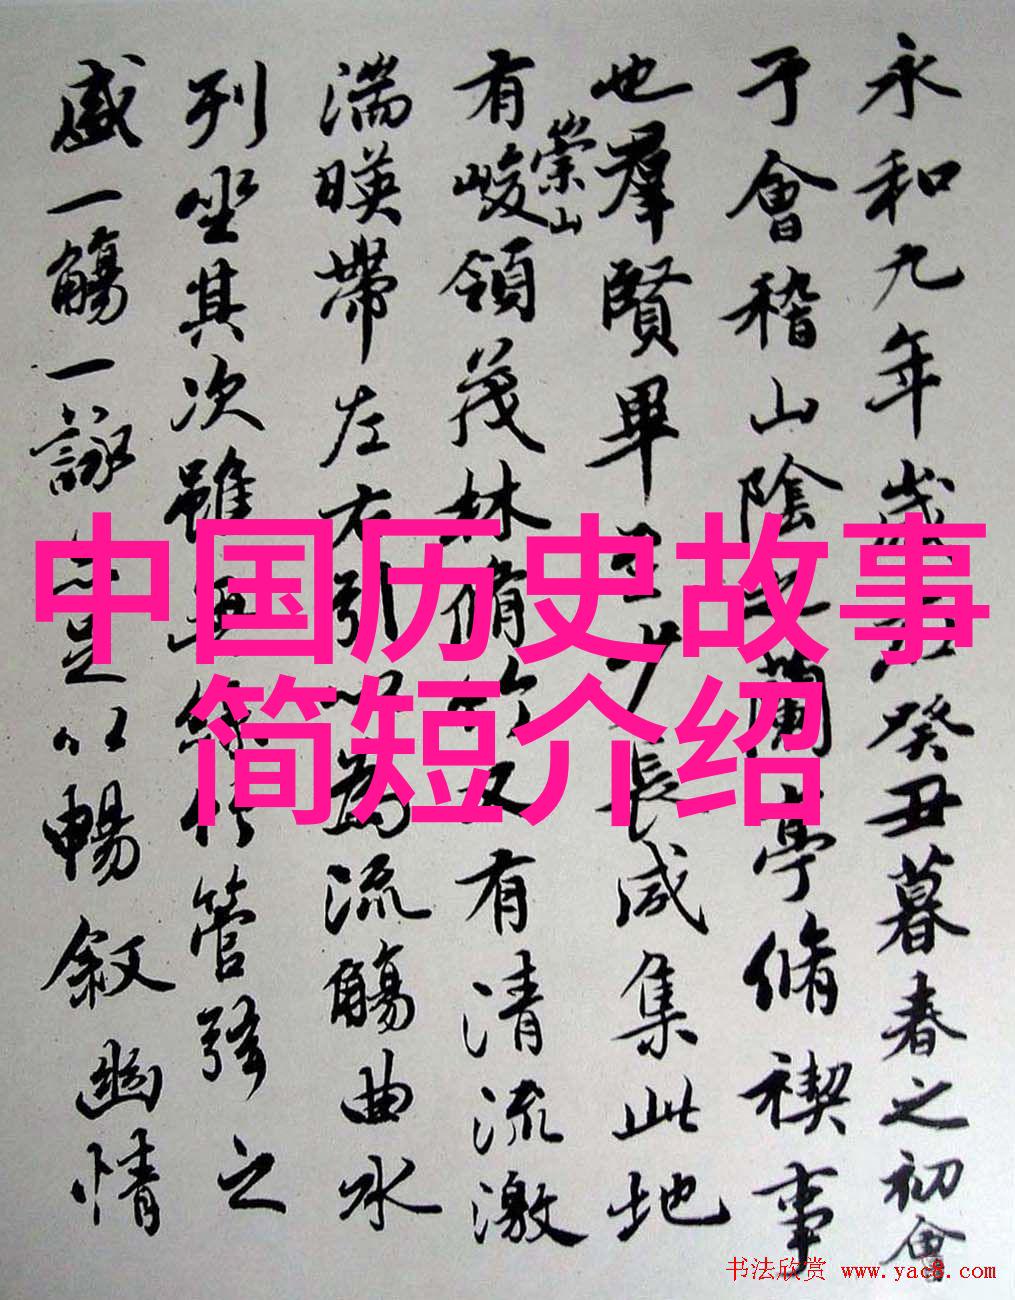 永和九年歲在癸丑暮春之初會
于會稽山陰之蘭亭脩禊事
也羣賢畢至少長咸集此地
有崇山峻領茂林脩竹又有清流激
湍暎帶左右引以為流觴曲水
列坐其次雖無絲竹管弦之
盛一觴一詠亦足以暢敘幽情
中国历史故事
简短介绍
书法欣赏 www.yac8.com